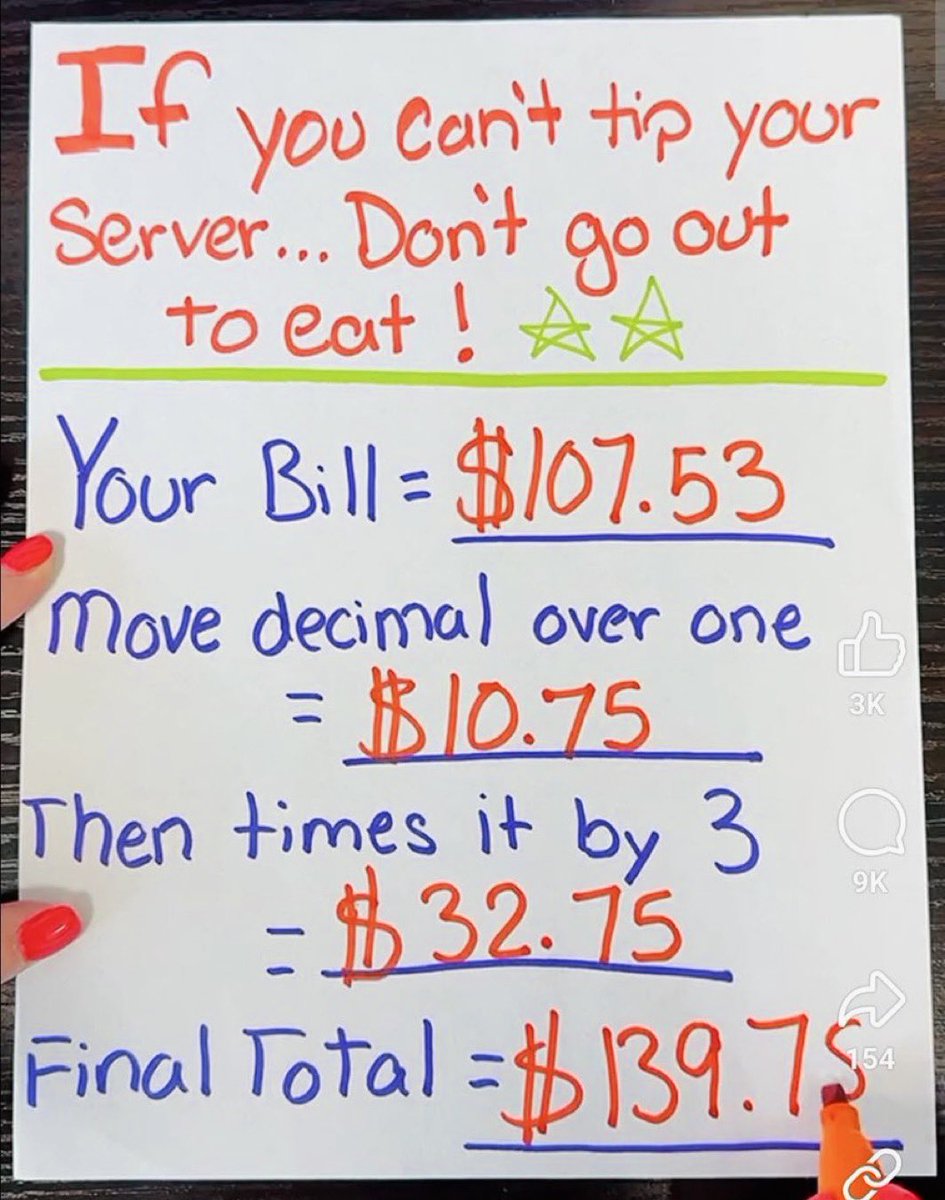 If you can't tip your
Server... Don't go out
to eat!
Your Bill = $107.53
Move decimal over one
= $10.75
Then times it by 3
= $32.75
Final Total = $139.75
3K
9K
154